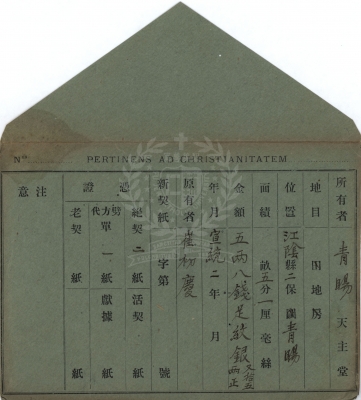 No
PERTINENS AD CHRISTIANITATEM
所有者 青暘 天主堂
地目 田地房
位置 江陰縣二保 圖青暘
面積 畝五分一厘毫絲
金額 五兩八錢足紋銀
年月 宣統二年 月
原有者 崔初慶
新契紙 字第 號
絕契二紙 活契 紙
方單一紙 獻據 紙
老契 紙 紙
證
注意